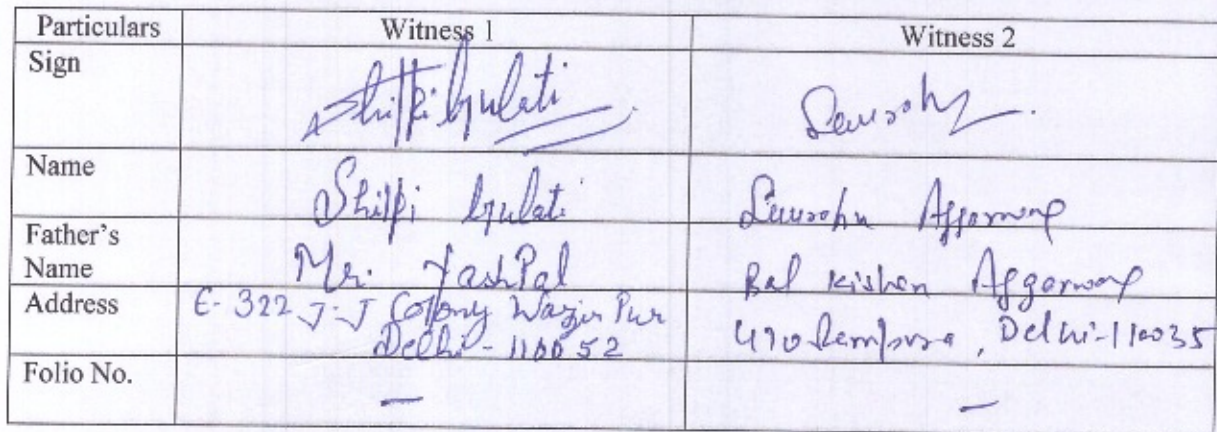 Particulars Witness 1 Witness 2
Sign Shilpi Gulati
Name Shilpi Gulati Aggarwal
Father's
Name Mr. Yash Pal Bal Kishan Aggarwal
Address E-322 J-J Colony Wazir Pur
Delhi - 110052 470 Rampura, Delhi-110035
Folio No. — —